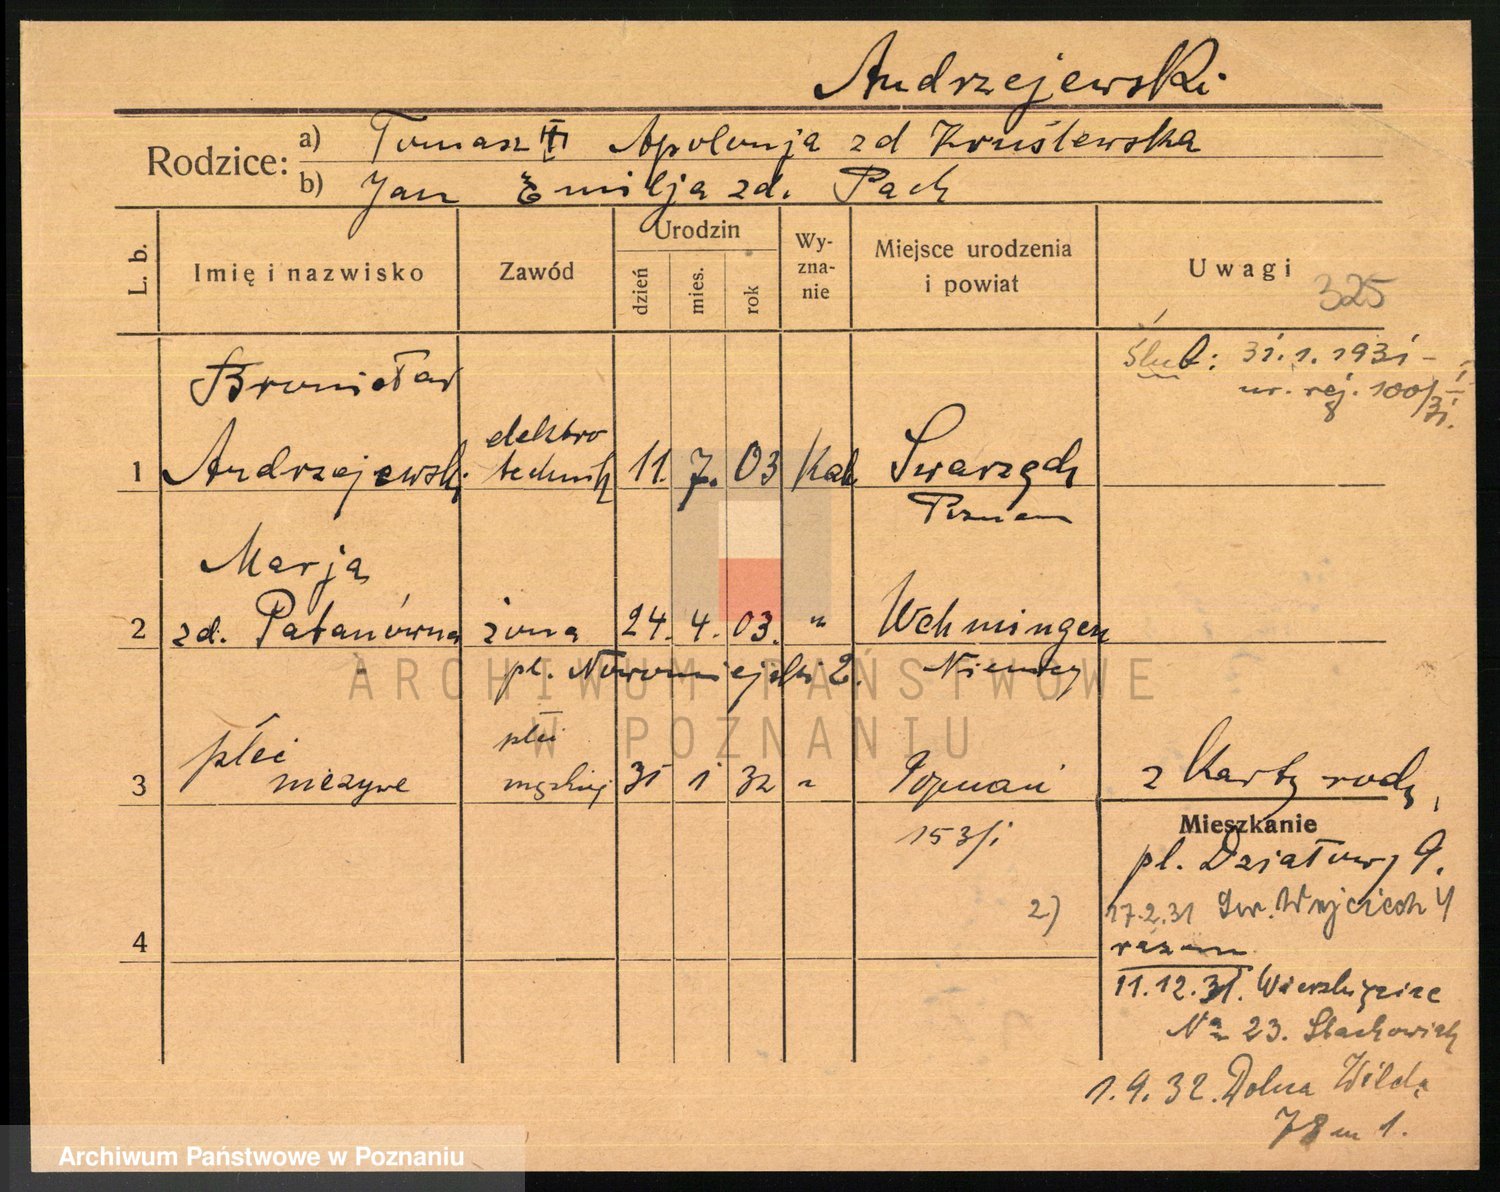 Andrzejewski
Rodzice:
a) Tomasz Apolonja zd Kruślewska
b) Jan Emilja zd. Pach
L. b.
Imię i nazwisko
Zawód
Urodzin
dzień
mies.
rok
Wy-
zna-
nie
Miejsce urodzenia
i powiat
Uwagi
325
Ślub: 31.1.1931 -
nr. rej. 100/I
31.
Bronisław
elektro
1 Andrzejewski technik 11. 7. 03 Kat Swarzędz
Poznań
Marja
2 zd. Patanówna żona 24. 4. 03. " Wehmingen
pl. Nowomiejski 2. Niemcy
płci
płci
3 nieżywe męskiej 31 1 32 " Poznań z Karty rodz.
153/i
Mieszkanie
pl. Działowy 9.
2) 17.2.31 Św. Wojciech 4
razem
4
11.12.31. Wierzbięcice
No 23. Stachowiak
1.9.32. Dolna Wilda
78 m 1.
ARCHIWUM PAŃSTWOWE
W POZNANIU
Archiwum Państwowe w Poznaniu